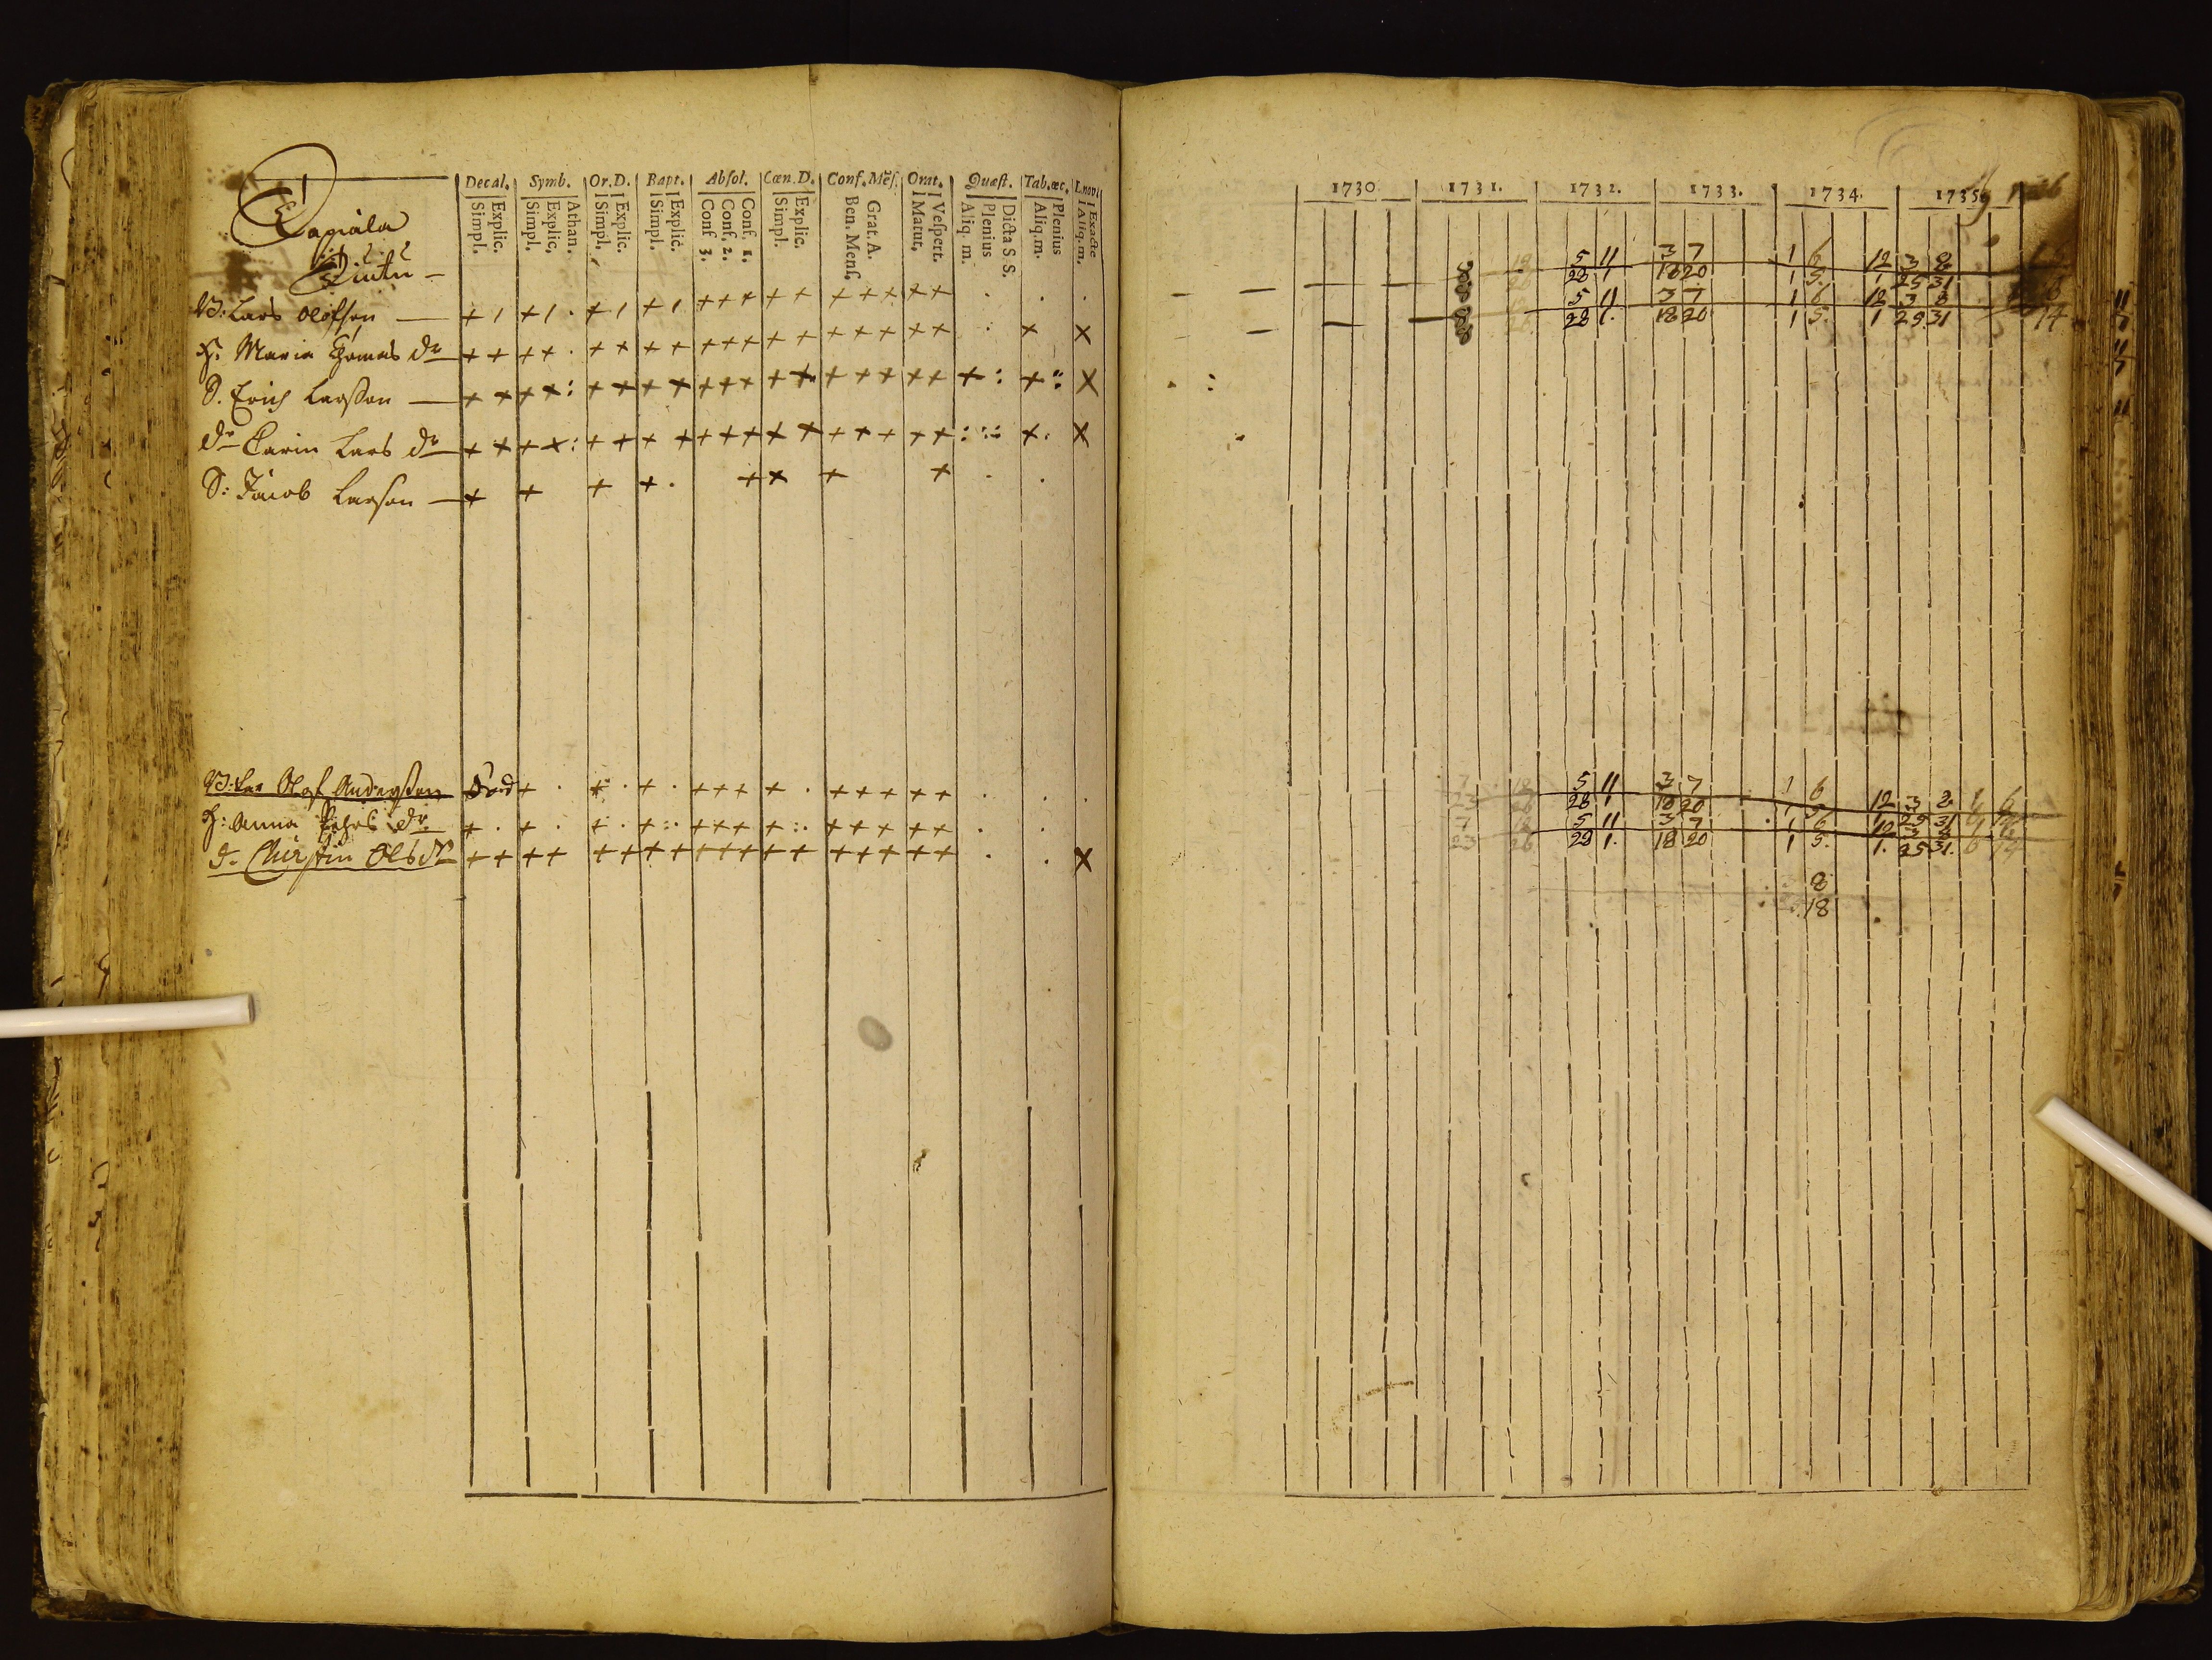 Decal. Symb. Or.D. Bapt. Absol. Cœn.D. Conf. Mēs. Orat. Quæst. Tab. œc. L.novi
Simpl. Explic. Simpl. Explic. Athan. Simpl. Explic. Simpl. Explic. Conf 3. Conf. 2. Conf. 1. Simpl. Explic. Ben. Mens. Grat. A. Matut. Vespert. Aliq. m. Plenius Dicta S S. Aliq. m. Plenius Aliq. m. Exacte
Lapiala
Lars Olofson + + + + + + + + + + + + + + +
H: Maria Thomas dr + + + + + + + + + + + + + + + + + + × ×
S. Erich Larsson + + + + : + + + + + + + + + + + + + + + : + ×
dr Carin Lars dr + + + + : + + + + + + + + + + + + + + × ×
S: Jacob Larson + + + + + + + +
Olof Andersson Död + + + + + + + + + + + +
H: Anna Pehrs dr + + + + + + + + + + + + +
d. Chirstin Ols dr + + + + + + + + + + + + + + + + + + ×
1730. 1731. 1732. 1733. 1734. 1735.
5 11 3 7 1 6 12 3 8
28 1 18 20 1 5. 1 25 31
5 11 3 7 1 6 12 3 8
28 1. 18 20 1 5. 1 25 31 14
7 12 5 11 3 7 1 6 12 3 8 1 6
23 26 28 1 18 20 1 5. 1 25 31
7 12 5 11 3 7 1 6 12 3 8
23 26 28 1. 18 20 1 5. 1. 25 31. 6 14
8
18